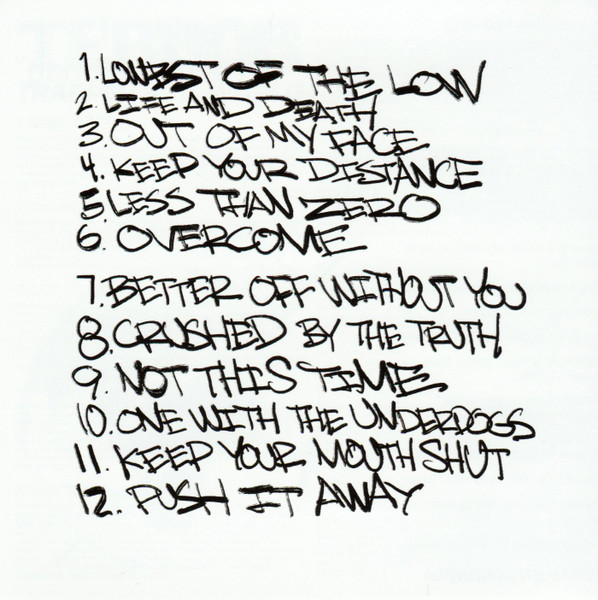 1. LOWEST OF THE LOW
2. LIFE AND DEATH
3. OUT OF MY FACE
4. KEEP YOUR DISTANCE
5. LESS THAN ZERO
6. OVERCOME
7. BETTER OFF WITHOUT YOU
8. CRUSHED BY THE TRUTH
9. NOT THIS TIME
10. ONE WITH THE UNDERDOGS
11. KEEP YOUR MOUTH SHUT
12. PUSH IT AWAY